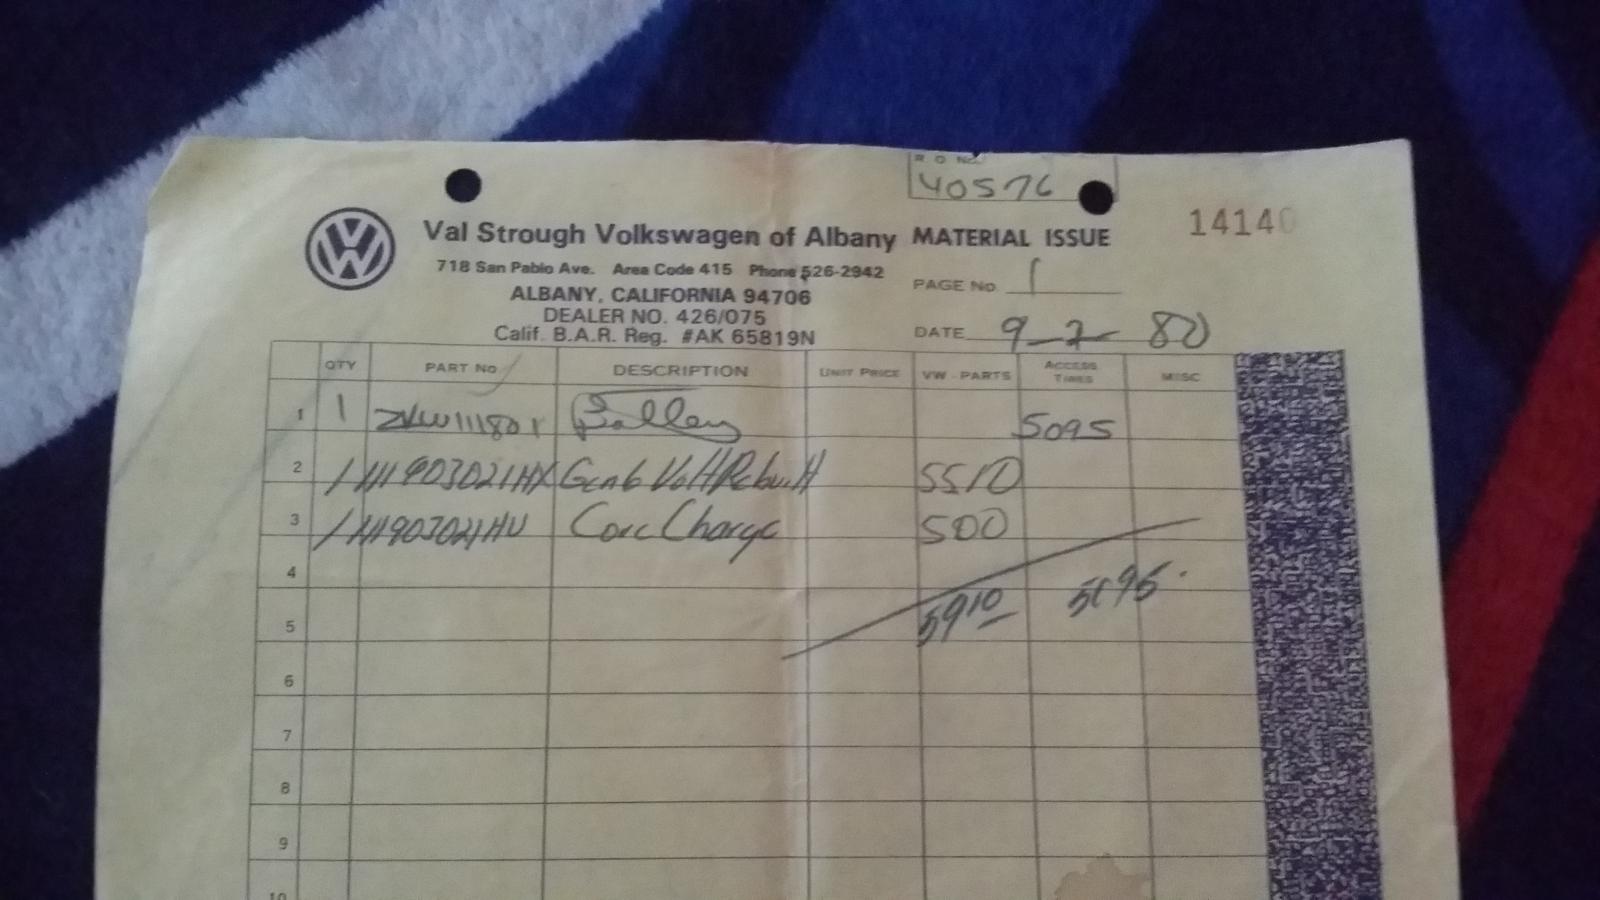 R. O. No.
40576
Val Strough Volkswagen of Albany MATERIAL ISSUE 14140
718 San Pablo Ave. Area Code 415 Phone 526-2942
PAGE No 1
ALBANY, CALIFORNIA 94706
DEALER NO. 426/075
Calif. B.A.R. Reg. #AK 65819N
DATE 9-2-80
QTY PART No DESCRIPTION UNIT PRICE VW-PARTS ACCESS TIRES MISC
1 1 ZVW111801 Battery 5095
2 1 111903021HX Gen 6 Volt Rebuilt 5510
3 1 111903021HV Core Charge 500
4 5095
5 5910
6
7
8
9
10